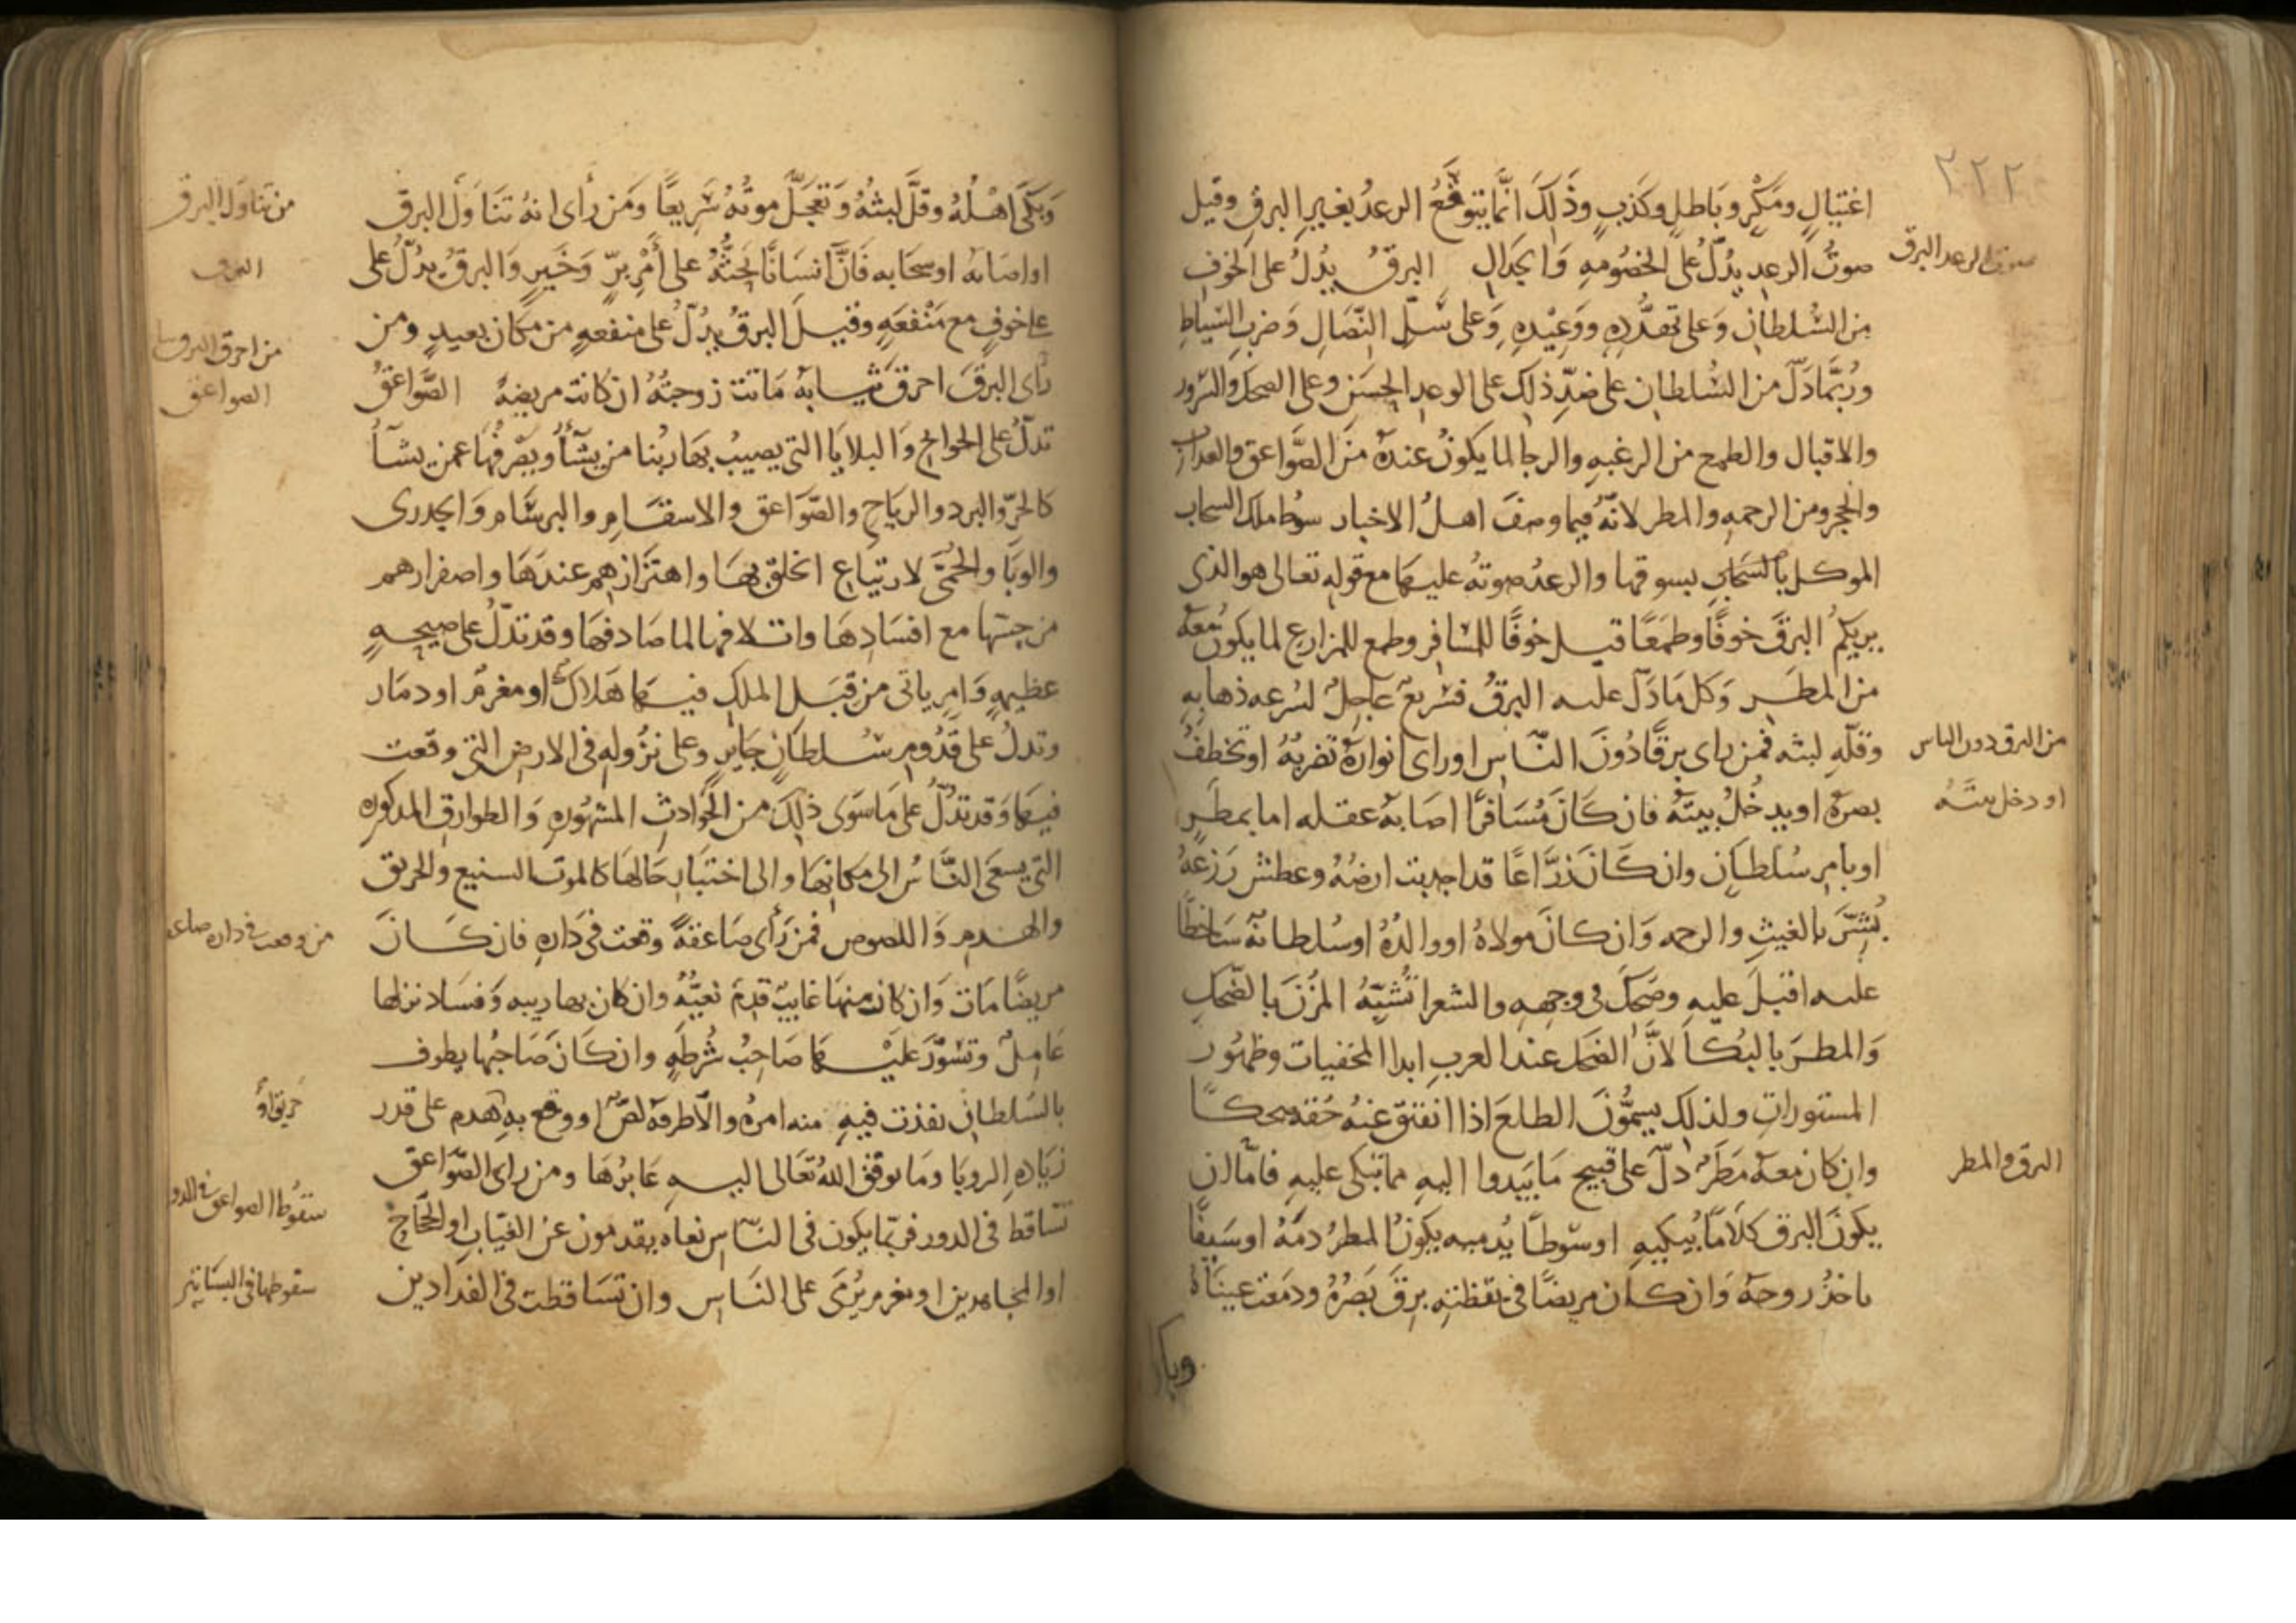 ٢٢٢
اغتيال ومكر وباطل وكذب وذلك انما يتوقع الرعد بغير البرق وقيل
صوت الرعد البرق
صوت الرعد يدل على الخصومه والجدال البرق يدل على الخوف
من السلطان وعلى تهدده ووعيده وعلى سل النصال وضرب السياط
وربما دل من السلطان على ضد ذلك على الوعد الحسن وعلى الضحك والسرور
والاقبال والطمع من الرغبه والرجا لما يكون عنده من الصواعق والعذاب
والحجر ومن الرحمه والمطر لانه فيما وصف اهل الاخبار سوط ملك السحاب
الموكل بالسحاب يسوقها والرعد صوته عليها مع قوله تعالى هو الذى
يريكم البرق خوفا وطمعا قيل خوفا للمسافر وطمع للمزارع لما يكون معه
من المطر وكل ما دل عليه البرق فسريع عاجل لسرعه ذهابه
من البرق دون الناس
وقله لبثه فمن راى برقا دون الناس او راى انواره تضربه او تخطف
او دخل بيته
بصره او يدخل بيته فان كان مسافرا اصابه عقله اما بمطر
او بامر سلطان وان كان زراعا قد اجدبت ارضه وعطش زرعه
بشر بالغيث والرحمه وان كان مولاه او والده او سلطانه ساخطا
عليه اقبل عليه وضحك فى وجهه والشعرا تشبه المزن بالضحك
والمطر بالبكا لان الضحك عند العرب ابدا المخفيات وظهور
المستورات ولذلك يسمون الطلع اذا انفتق عنه جفنه ضحكا
البرق والمطر
وان كان معه مطر دل على قبيح ما يبدوا اليه مما تبكى عليه فاما ان
يكون البرق كلاما يبكيه او سوطا يدميه يكون المطر دمه او سيفا
ياخذ روحه وان كان مريضا فى يقظته برق بصره ودمعت عيناه
وبكا
من تناول البرق
وبكى اهله وقل لبثه وتعجل موته سريعا ومن راى انه تناول البرق
البرق
او اصابه او سحابه فان انسانا يحثه على امر بر وخير والبرق يدل على
على خوف مع منفعه وقيل البرق يدل على منفعه من مكان بعيد ومن
من احرق البرق
راى البرق احرق ثيابه ماتت زوجته ان كانت مريضه الصواعق
الصواعق
تدل على الحوايج والبلايا التى يصيب بها ربنا من يشا ويصرفها عمن يشا
كالحر والبرد والرياح والصواعق والاسقام والبرسام والجدرى
والوبا والحمى لارتياع الخلق بها واهتزازهم عندها واصفرارهم
من حسها مع افسادها واتلافها لما صادفها وقد تدل على صيحه
عظيمه وامر ياتى من قبل الملك فيها هلاك او مغرم او دمار
وتدل على قدوم سلطان جاير وعلى نزوله فى الارض التى وقعت
فيها وقد تدل على ما سوى ذلك من الحوادث المشهوره والطوارق المذكوره
التى يسعى الناس الى مكانها والى اختبار حالها كالموت السنيع والحريق
والهدم واللصوص فمن راى صاعقة وقعت فى داره فان كان
من وقعت فى داره صاعقه
مريضا مات وان كان منها غايب قدم نعيه وان كان بها ريبه وفساد نزلها
عامل وتسور عليها صاحب شرطه وان كان صاحبها يطوف
حريق او
بالسلطان نفذت فيه منه امره والا طرقه لص او وقع به هدم على قدر
زياده الرويا وما يوفق الله تعالى اليه عابرها ومن راى الصواعق
سقوط الصواعق فى الدور
تساقط فى الدور فربما يكون فى الناس نعاه يقدمون عن الغياب او الحجاج
سقوطها فى البساتين
او المجاهدين او مغرم يرمى على الناس وان تساقطت فى الفدادين